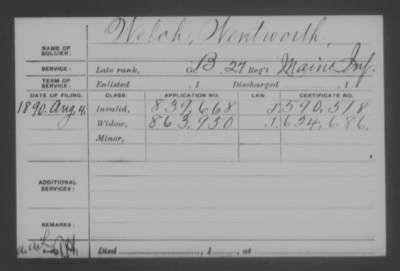 Welch, Wentworth,
NAME OF SOLDIER:
SERVICE: Late rank, Co. B, 27 Reg't Maine Inf.
TERM OF SERVICE: Enlisted , 1 Discharged , 1
DATE OF FILING. CLASS. APPLICATION NO. LAW. CERTIFICATE NO.
1890. Aug. 4. Invalid, 839,668 590,518
Widow, 863,950 624,686.
Minor,
ADDITIONAL SERVICES:
REMARKS:
Died , 1 , at